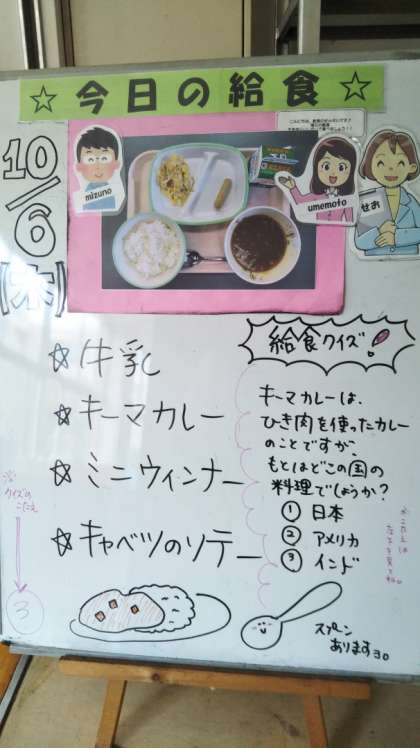 ☆今日の給食☆
10/6
【木】
mizuno
umemoto
せお
☆牛乳
☆キーマカレー
☆ミニウィンナー
☆キャベツのソテー
給食クイズ!
キーマカレーは、
ひき肉を使ったカレー
のことですが、
もとはどこの国の
料理でしょうか?
① 日本
② アメリカ
③ インド
クイズの
こたえ
3
スプーン
ありますョ。